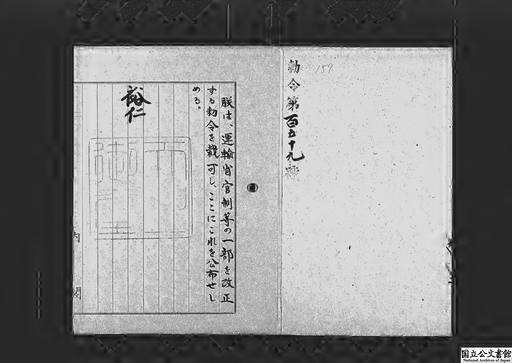 勅令第百五十九號
159
朕は、運輸省官制等の一部を改正
する勅令を裁可し、ここにこれを公布せし
める。
裕仁
内閣
国立公文書館
National Archives of Japan